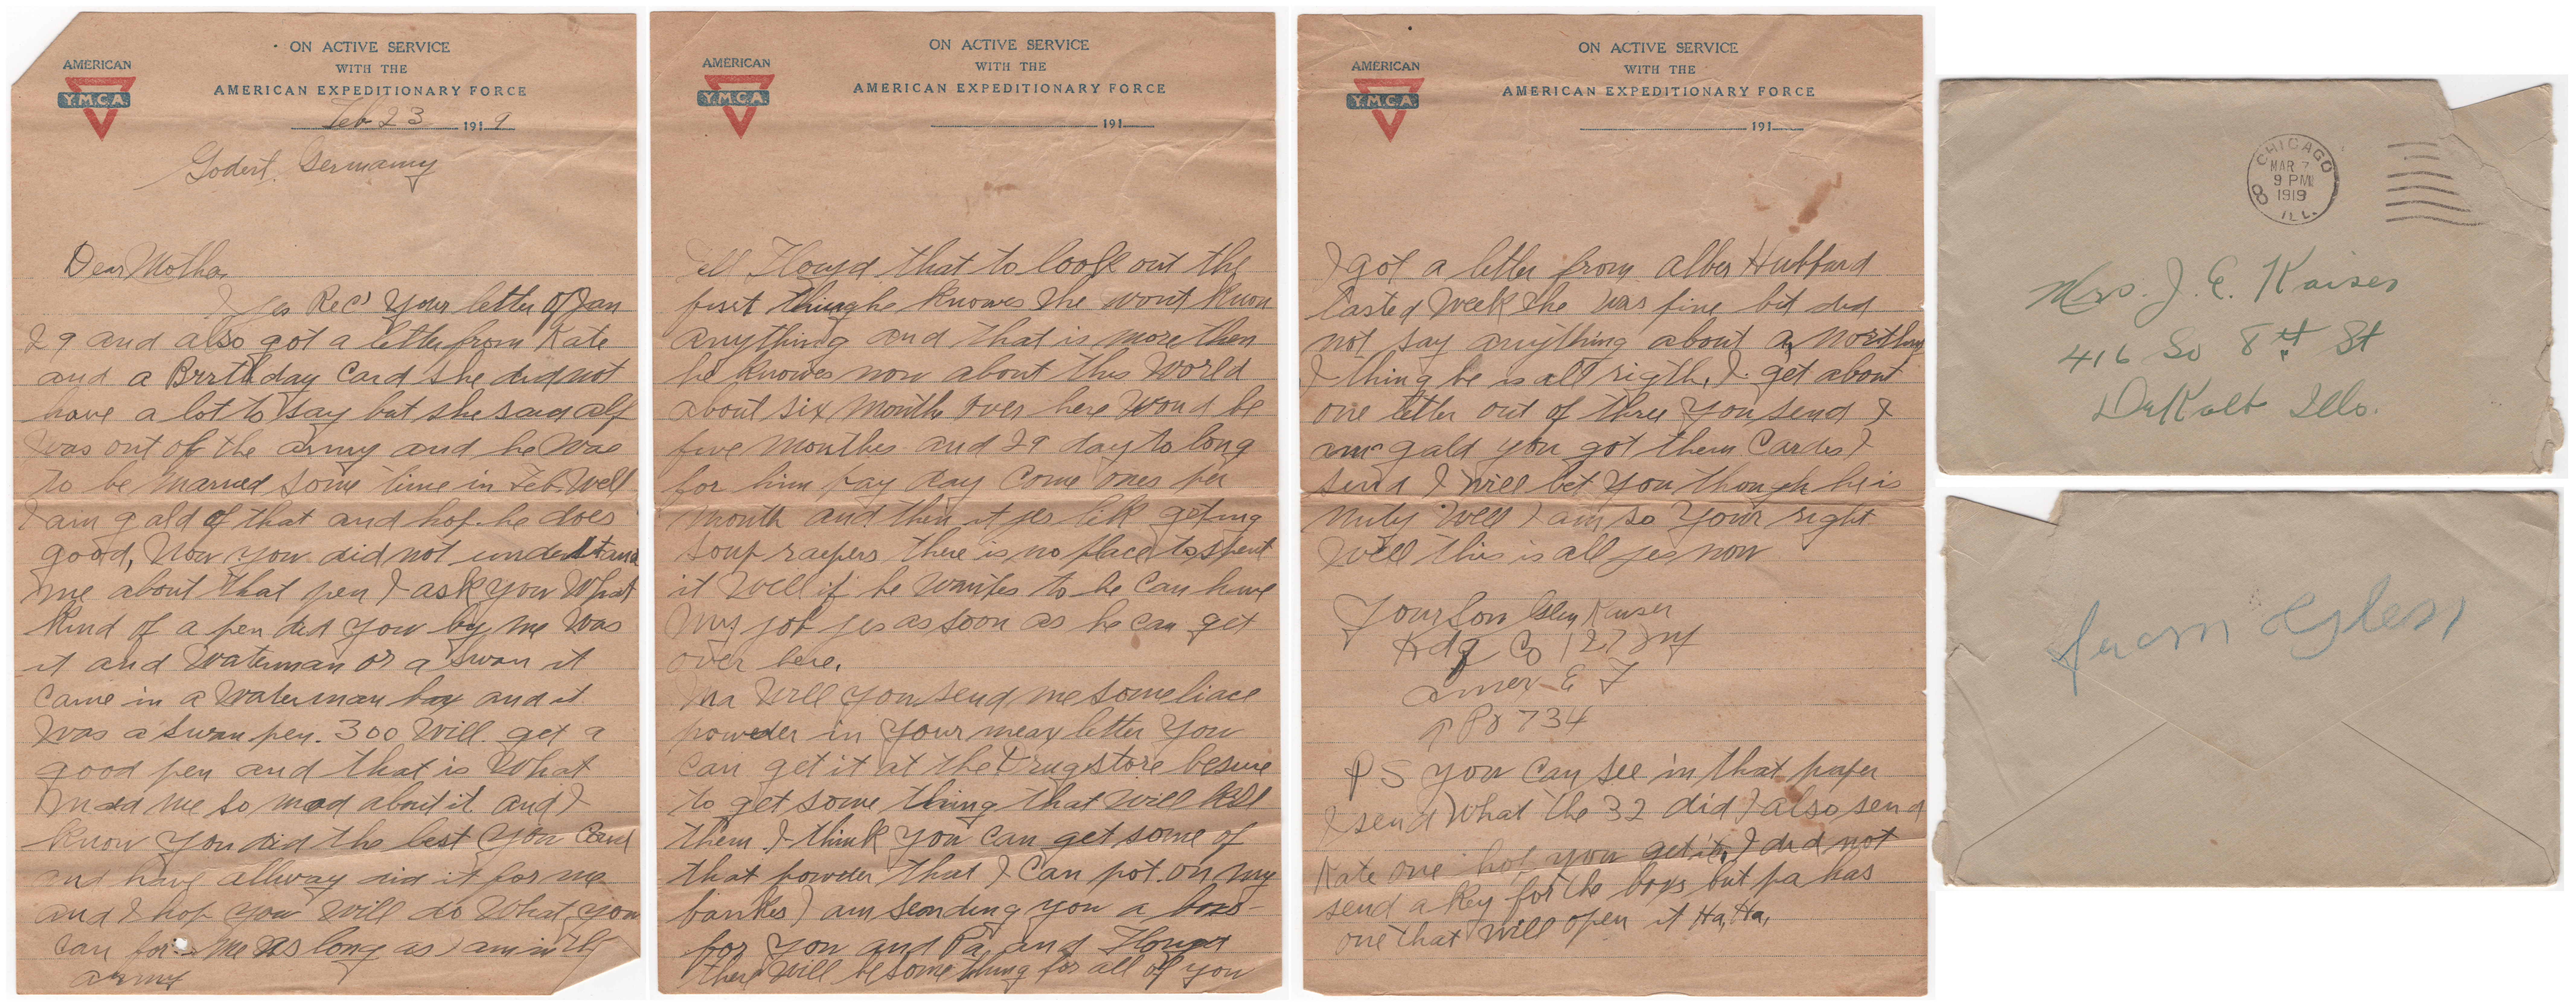 ON ACTIVE SERVICE
WITH THE
AMERICAN EXPEDITIONARY FORCE
AMERICAN
Y.M.C.A.
Feb 23 1919
Godert, Germanny
Dear Mother
I jes Rec' your letter of Jan
29 and also got a letter from Kate
and a Brrthday Card she did not
have a lot to say but she said alf
was out of the army and he was
to be married some time in Feb. Well
I am gald of that and hop he does
good, Now you did not understand
me about that pen I ask you What
kind of a pen did you by me Was
it and Waterman or a Swan it
Came in a Waterman box and it
Was a Swan pen. 300 Will get a
good pen and that is What
maed me so mad about it and I
know you did the best you Coud
and have allway did it for me
and I hop you Will do What you
can for me as long as I am in the
army
ON ACTIVE SERVICE
WITH THE
AMERICAN EXPEDITIONARY FORCE
AMERICAN
Y.M.C.A.
191
Tell Floyd that to look out the
first thing he knowes she wont know
anything and that is more then
he knowes now about this World
about six month over here Woud be
five monthes and 29 day to long
for him pay day come ones per
month and then it jes lik geting
soup there is no place to spent
it Well if he wantes to he can have
my job jes as soon as he can get
over here.
Ma Will you send me some liace
powder in your mext letter you
can get it at the Drugstore besure
to get some thing that will kill
them I think you can get some of
that powder that I can pot on my
I am sending you a boxs
for you and Pa, and Floyd
there Will be some thing for all of you
ON ACTIVE SERVICE
WITH THE
AMERICAN EXPEDITIONARY FORCE
AMERICAN
Y.M.C.A.
191
I got a letter from Alber Hubbard
lasted Week she was fine bit did
not say anything about a, northing
I thing he is all rigth, I get about
one letter out of three you send I
am gald you got them Cardes I
send I Will bet you though he is
nuty Well I am so your right
Well this is all jes now
Your Son Glen Kaiser
Hdq Co 127 Inf
Amex E F
A P O 734
P S you can see in that paper
I send What the 32 did I also send
Kate one hop you get it, I did not
send a key for the boxs but pa has
one that Will open it Ha, Ha,
CHICAGO
MAR 7
9 PM
1919
8
ILL.
Mrs. J. E. Kaiser
416 So 8th St
DeKalb Ills.
from Glen